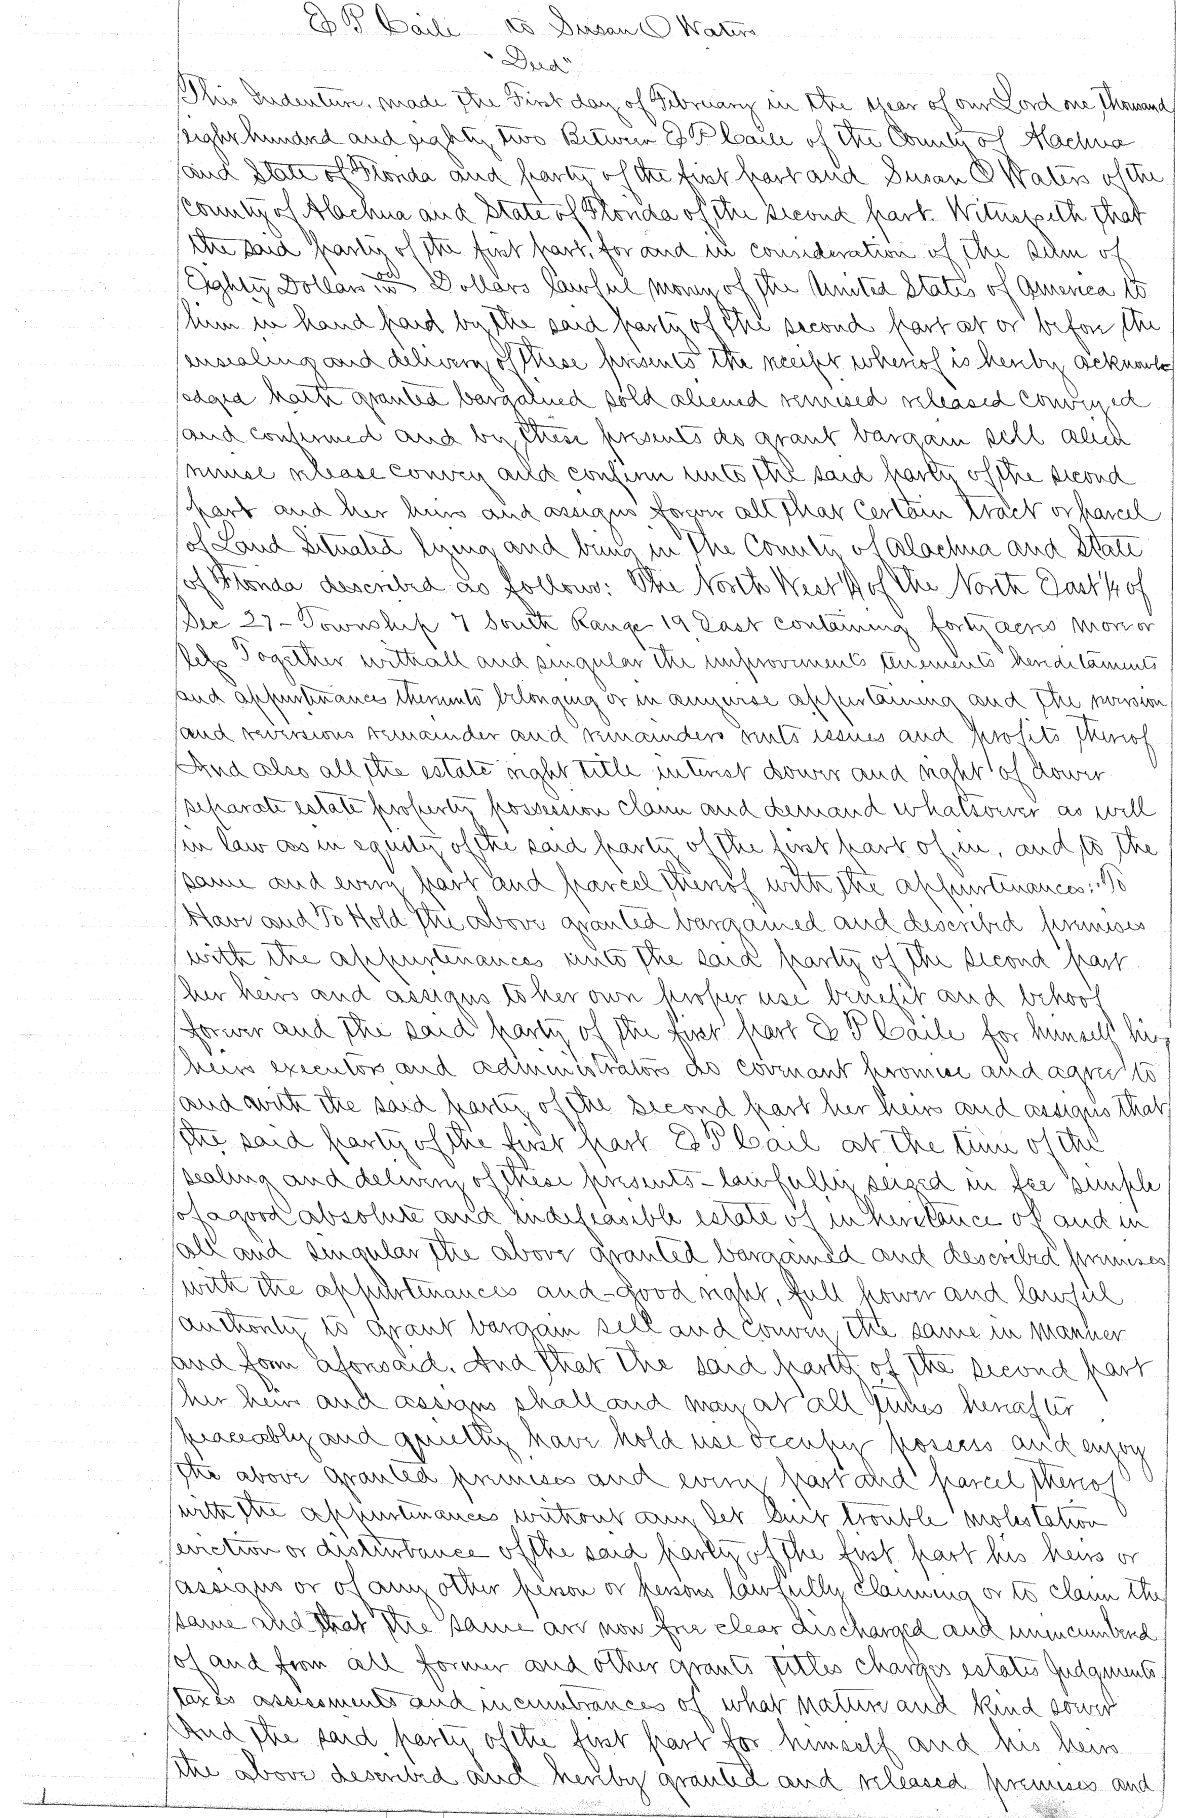 E P Caile to Susan O Waters
"Deed"
This Indenture, made the First day of February in the year of our Lord one thousand
eight hundred and eighty two Between E P Caile of the County of Alachua
and State of Florida and party of the first part and Susan O Waters of the
County of Alachua and State of Florida of the second part. Witnesseth that
the said party of the first part, for and in consideration of the sum of
Eighty Dollars Dollars lawful money of the United States of America to
him in hand paid by the said party of the second part at or before the
ensealing and delivery of these presents the receipt whereof is hereby acknowl
edged hath granted bargained sold aliened remised released conveyed
and confirmed and by these presents do grant bargain sell alien
remise release convey and confirm unto the said party of the second
part and her heirs and assigns forever all that certain tract or parcel
of Land Situated lying and being in the County of Alachua and State
of Florida described as follows: The North West 1/4 of the North East 1/4 of
Sec 27 - Township 7 South Range 19 East containing forty acres more or
less Together with all and singular the improvements tenements hereditaments
and appurtenances thereunto belonging or in anywise appertaining and the reversion
and reversions remainder and remainders rents issues and profits thereof
And also all the estate right title interest dower and right of dower
separate estate property possession claim and demand whatsoever as well
in law as in equity of the said party of the first part of, in, and to the
same and every part and parcel thereof with the appurtenances: To
Have and To Hold the above granted bargained and described premises
with the appurtenances unto the said party of the second part
her heirs and assigns to her own proper use benefit and behoof
forever and the said party of the first part E P Caile for himself his
heirs executors and administrators do covenant promise and agree to
and with the said party of the second part her heirs and assigns that
the said party of the first part E P Cail at the time of the
sealing and delivery of these presents - lawfully seized in fee simple
of a good absolute and indefeasible estate of inheritance of and in
all and singular the above granted bargained and described premises
with the appurtenances and - good right, full power and lawful
authority to grant bargain sell and convey the same in manner
and form aforesaid. And that the said party of the second part
her heirs and assigns shall and may at all times hereafter
peaceably and quietly have hold use occupy possess and enjoy
the above granted premises and every part and parcel thereof
with the appurtenances without any let suit trouble molestation
eviction or disturbance of the said party of the first part his heirs or
assigns or of any other person or persons lawfully claiming or to claim the
same and that the same are now free clear discharged and unincumbered
of and from all former and other grants titles charges estates Judgments
taxes assessments and incumbrances of what nature and kind soever
And the said party of the first part for himself and his heirs
the above described and hereby granted and released premises and